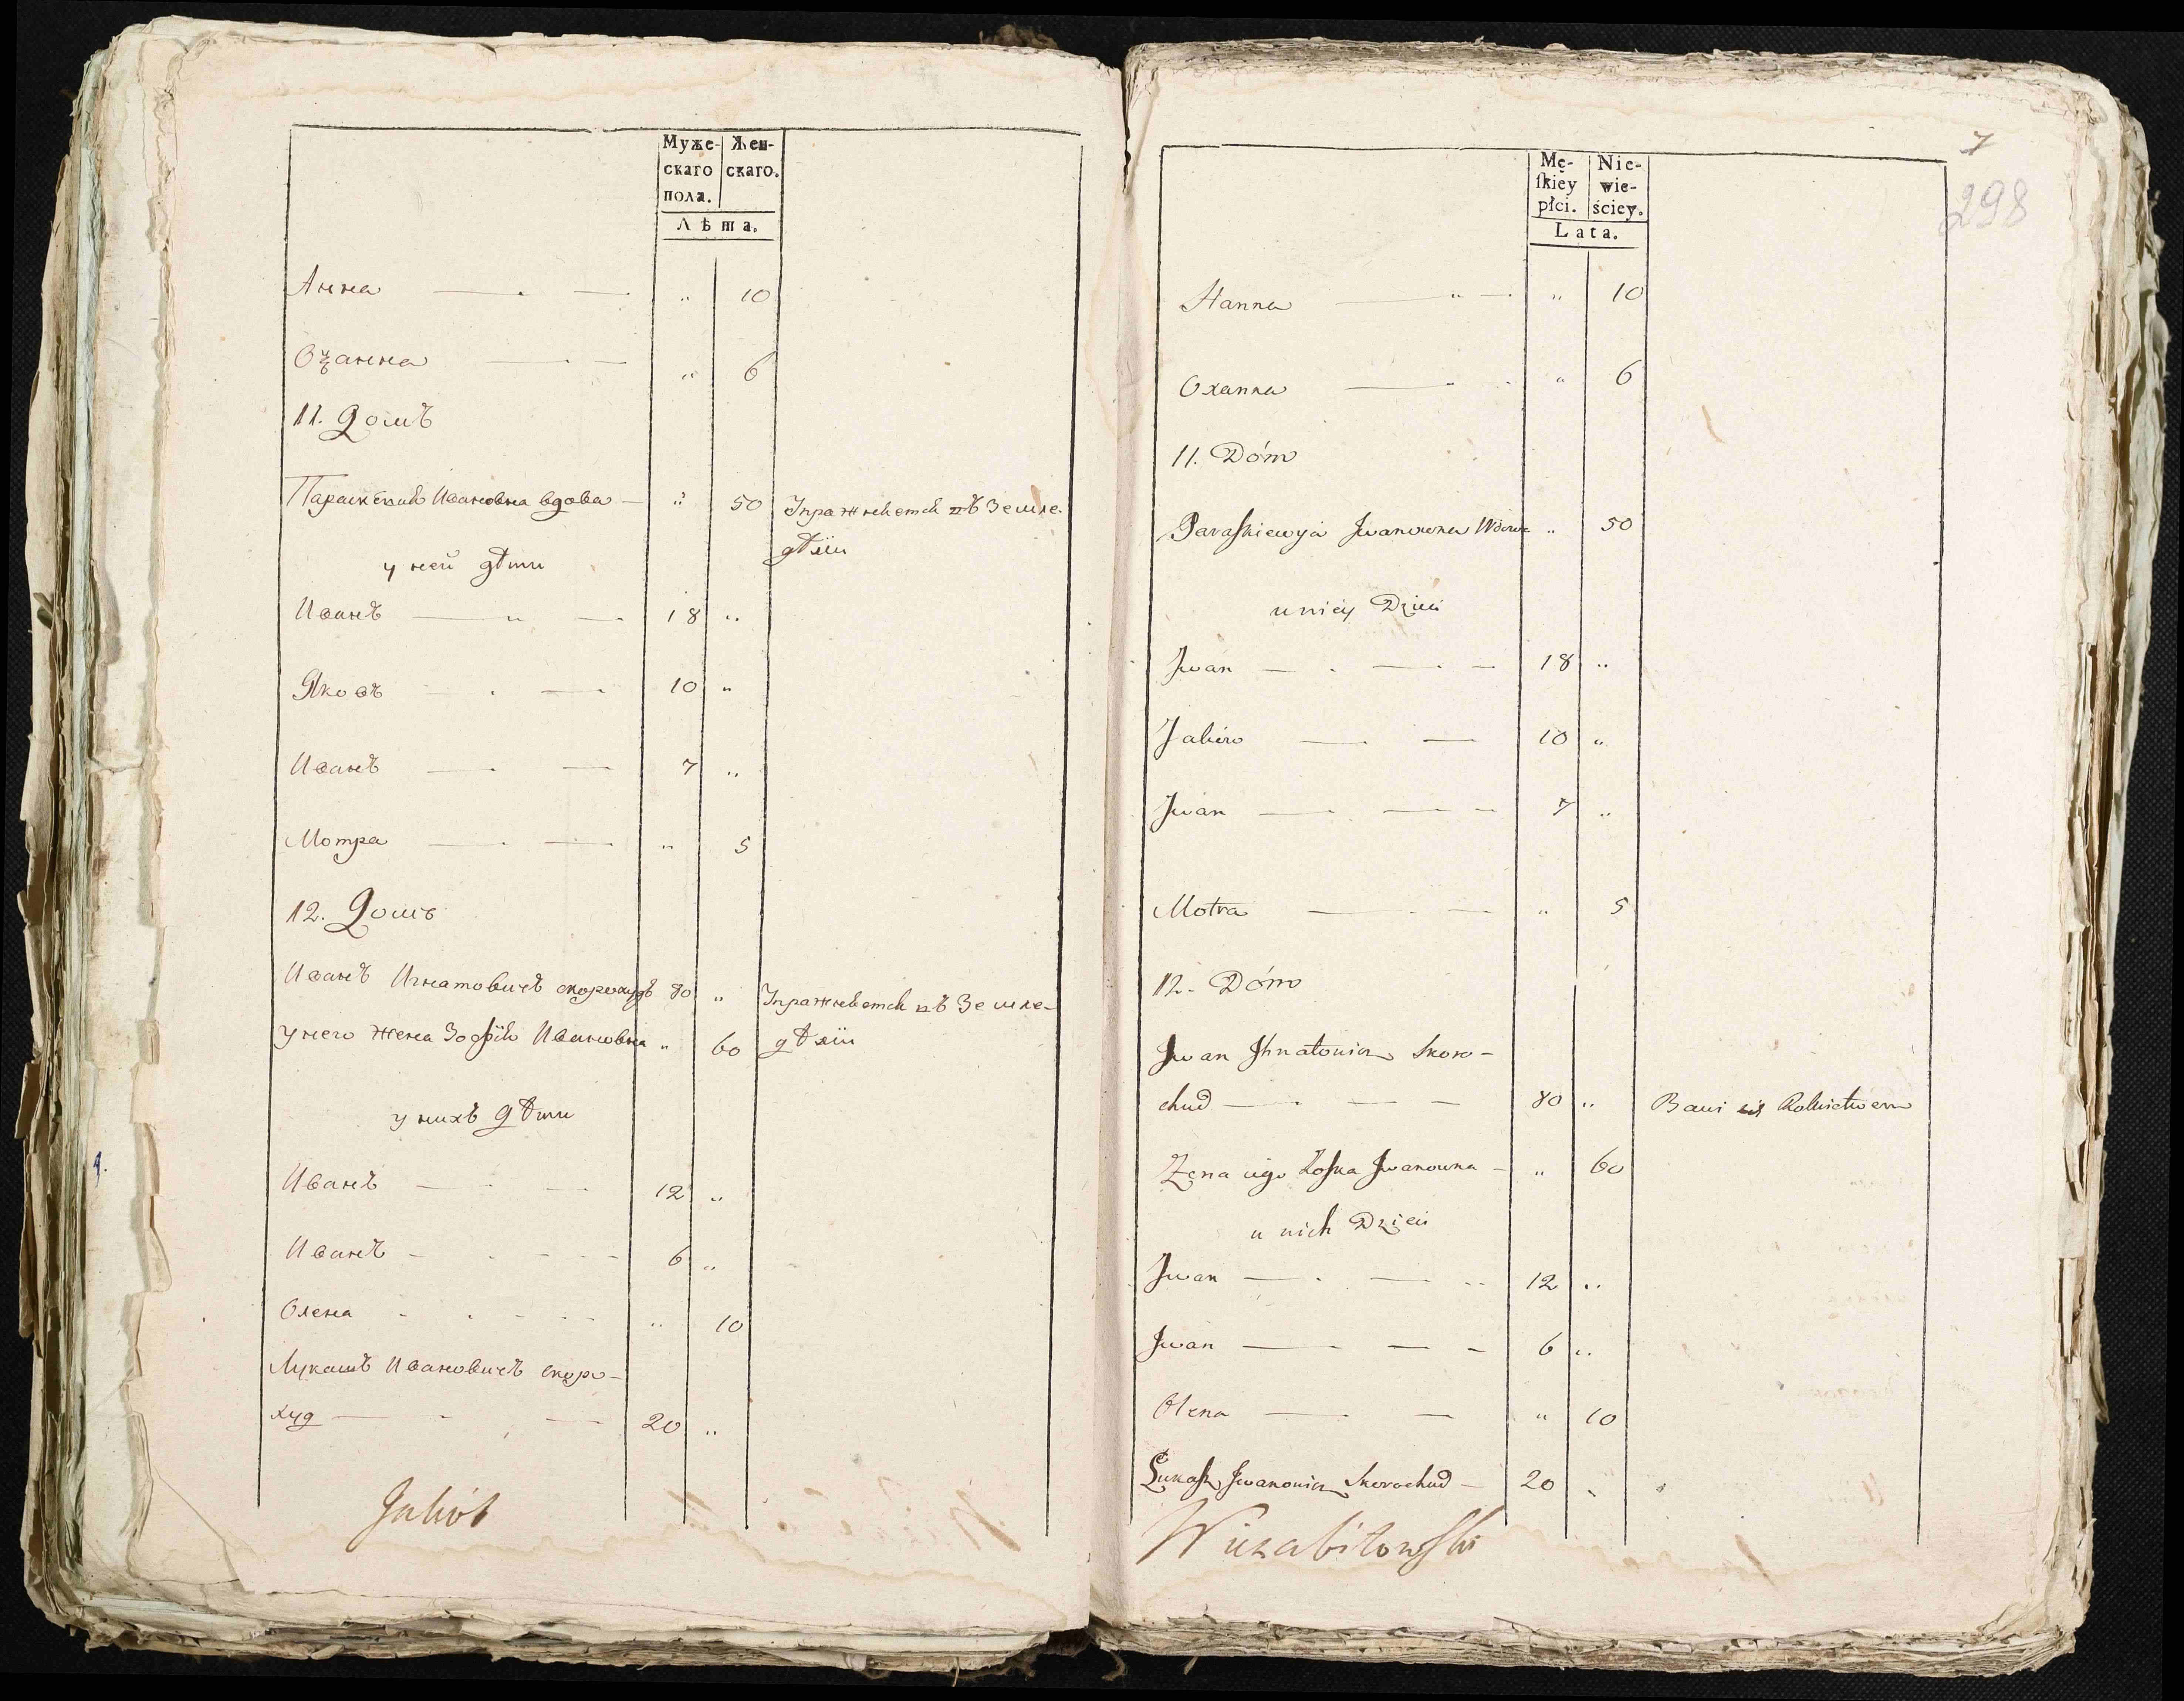 Муже-
скаго
пола.
Жен-
скаго.
Лѣта.
Анна — . — „ 10
Оҳанна — . — „ 6
11. Домъ
Параскевия Ивановна вдова — „ 50 Упражняется въ Земле-
дѣлiи
у ней дѣти
Иванъ — „ — 18 „
Яковъ — . — 10 „
Иванъ — . — 7 „
Мотра — . — „ 5
12. Домъ
Иванъ Игнатовичъ скорохудъ 80 „ Упражняется въ Земле-
у него жена Зофiя Ивановна „ 60 дѣлiи
у нихъ дѣти
Иванъ — . — 12 „
Иванъ — . — 6 „
Олена - . - . - „ 10
Лукашъ Ивановичъ скоро-
худ — - — 20 „
Jakób
7
298
Mę-
ſkiey
płci.
Nie-
wie-
ściey.
Lata.
Hanna — „ — „ 10
Oxanna — - . „ 6
11. Dóm
Paraſkiewyja Jwanowna Wdowa „ 50
u niey Dzieci
Jwan — . — . — 18 „
Jaków — . — 10 „
Jwan — . — - 7 „
Motra — . — „ 5
12. Dóm
Jwan Jhnatowicz Skoro-
chud — . — — 80 „ Bawi się Rolnictwem
Żena iego Zoſia Jwanowna — „ 60
u nich Dzieci
Jwan — . — „ 12 „
Jwan — - — - 6 „
Olena — . — „ 10
Łukaſz Jwanowicz Skorochud — 20 „